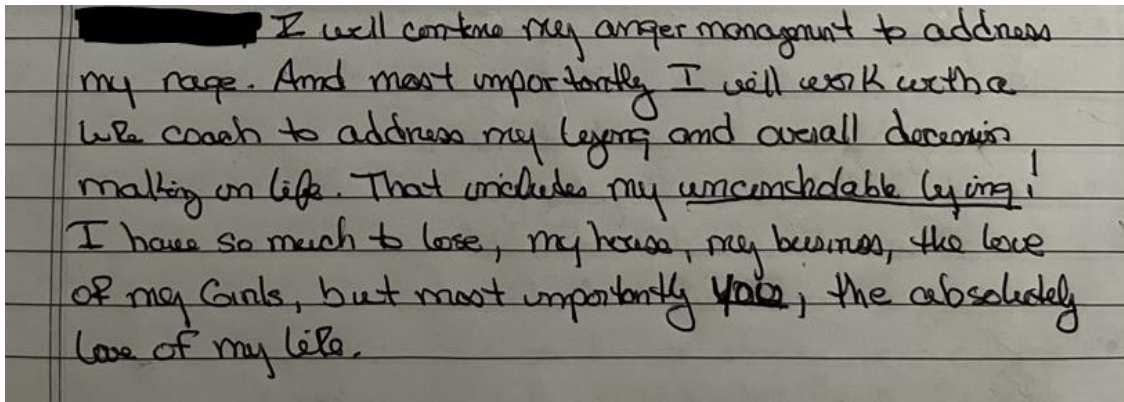 I will contine my anger managmunt to address
my rage. And most importantly I will work with a
life coach to address my lying and overall decision
making in life. That includes my uncontrolable lying!
I have so much to lose, my house, my business, the love
of my Girls, but most importantly you, the absolutely
love of my life.